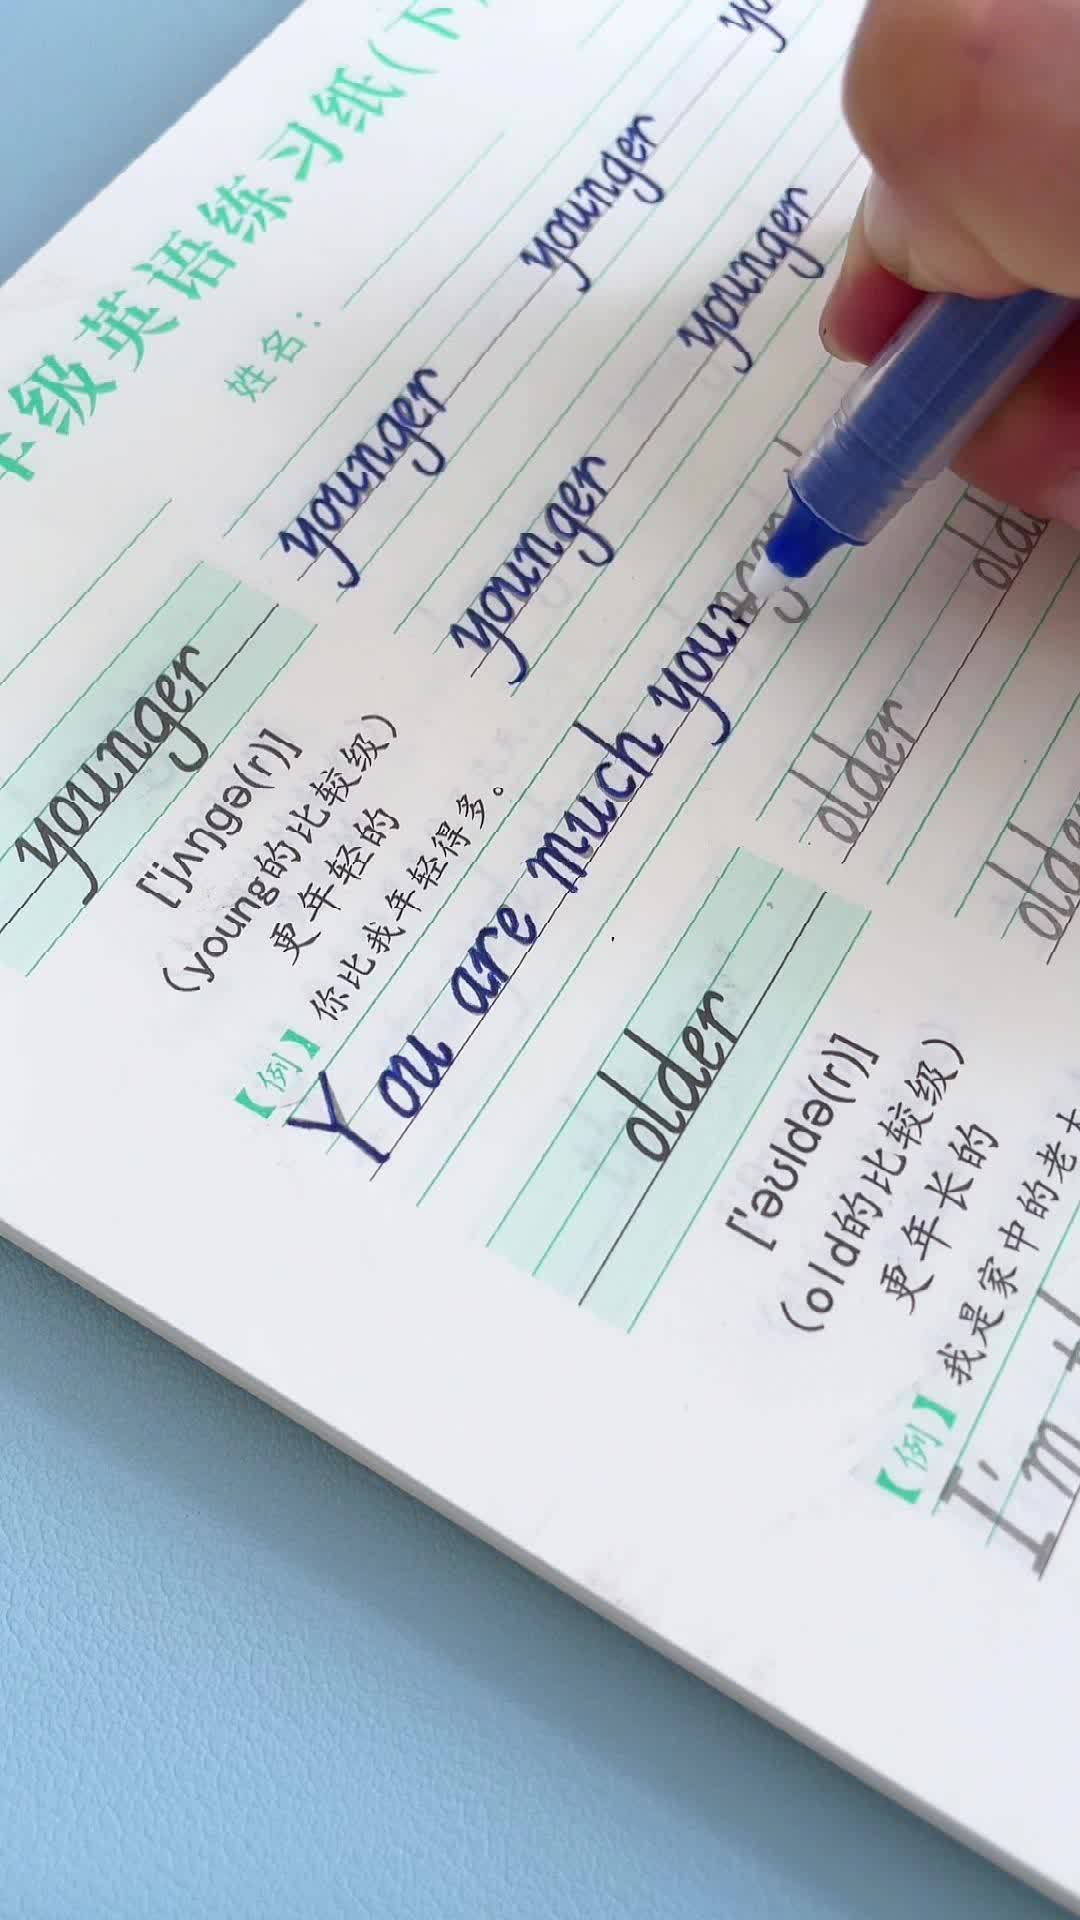 级英语练习纸(下
姓名:
younger younger younger
['jʌŋgə(r)] younger younger
(young的比较级)
更年轻的
【例】你比我年轻得多。
You are much younger
older older
['əʊldə(r)]
(old的比较级)
更年长的
【例】我是家中的老
I'm